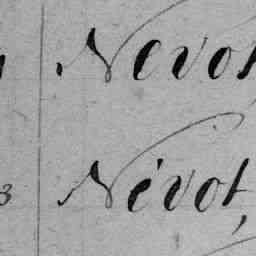 Nevot
3 Névot,